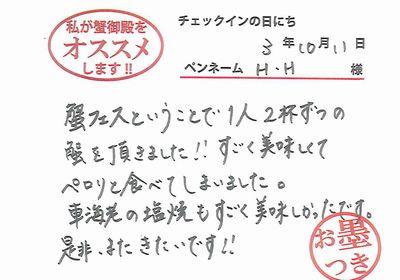 私が蟹御殿を
オススメ
します!!
チェックインの日にち
3年10月11日
ペンネーム H・H 様
蟹フェスということで1人2杯ずつの
蟹を頂きました!! すごく美味しくて
ペロリと食べてしまいました。
車海老の塩焼もすごく美味しかったです。
是非、またきたいです!!
お墨
つき